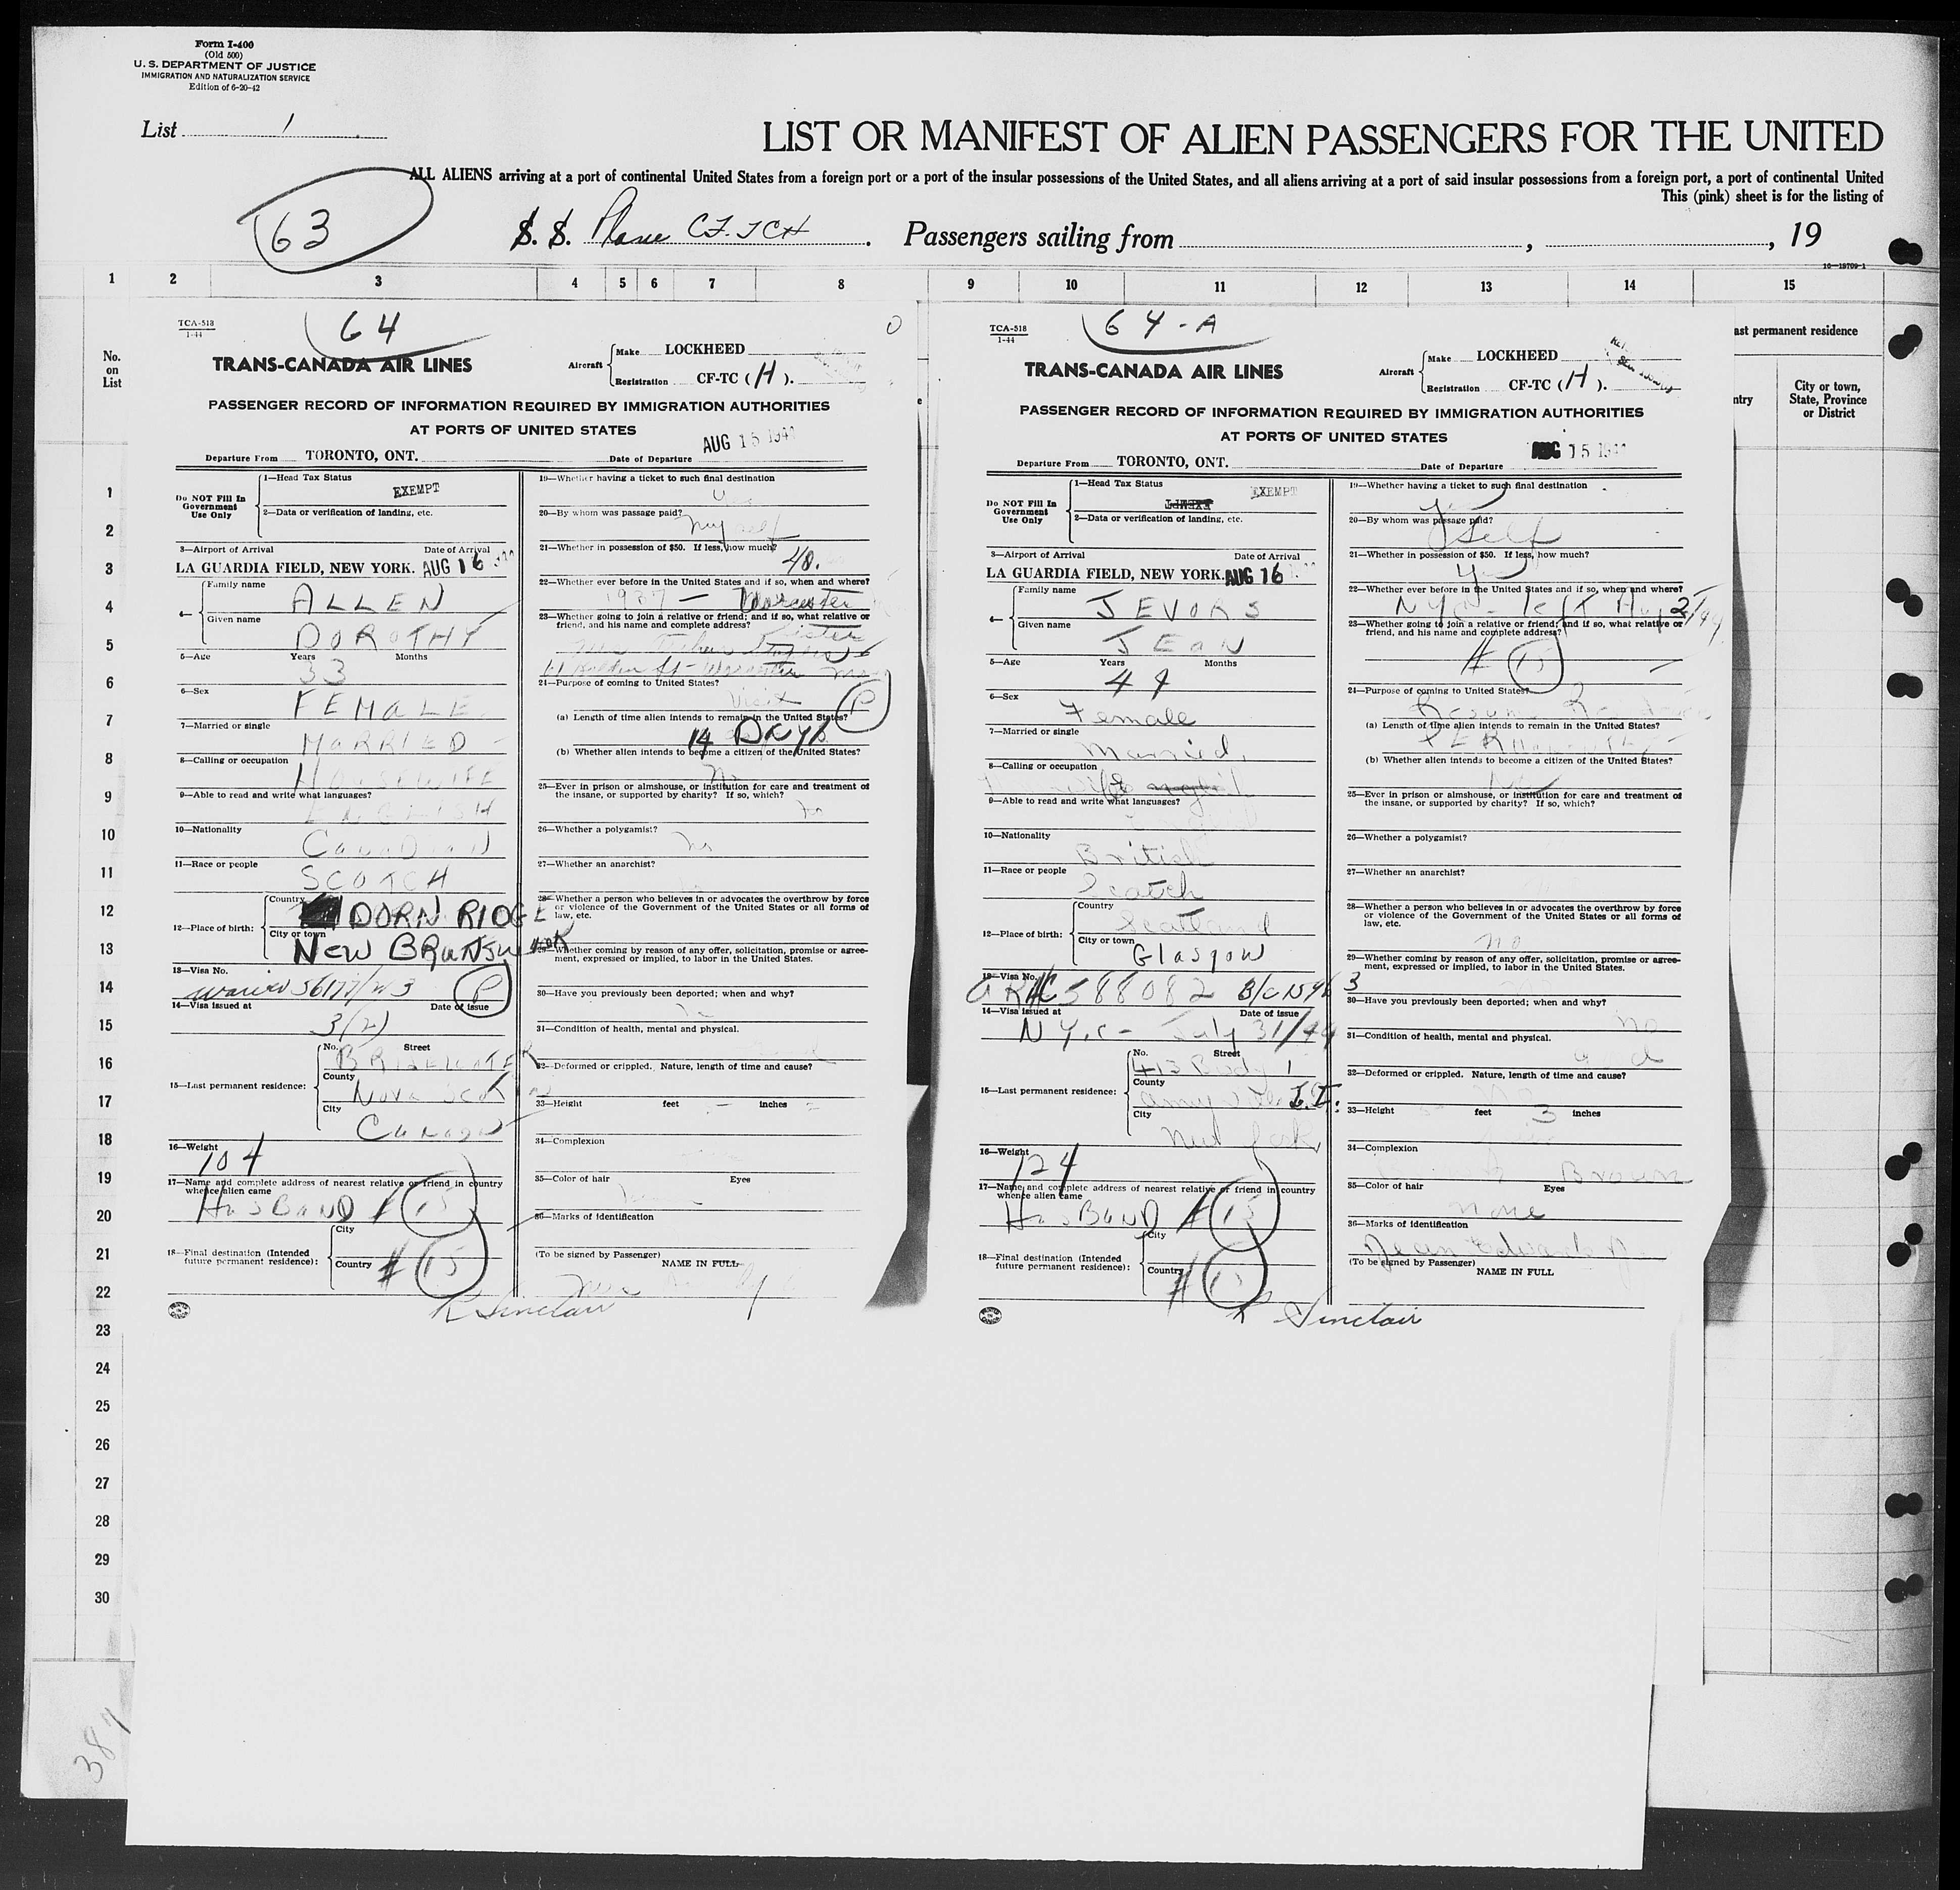 Form I-400
(Old 500)
U. S. DEPARTMENT OF JUSTICE
IMMIGRATION AND NATURALIZATION SERVICE
Edition of 6-20-42
List 1
LIST OR MANIFEST OF ALIEN PASSENGERS FOR THE UNITED
ALL ALIENS arriving at a port of continental United States from a foreign port or a port of the insular possessions of the United States, and all aliens arriving at a port of said insular possessions from a foreign port, a port of continental United
This (pink) sheet is for the listing of
63
S. S. Plane CF-TCH . Passengers sailing from , , 19
16—18709-1
1 2 3 4 5 6 7 8 9 10 11 12 13 14 15
No. on List
1
2
3
4
5
6
7
8
9
10
11
12
13
14
15
16
17
18
19
20
21
22
23
24
25
26
27
28
29
30
TCA-518
1-44
64
TRANS-CANADA AIR LINES
Aircraft
Make LOCKHEED
Registration CF-TC (H).
PASSENGER RECORD OF INFORMATION REQUIRED BY IMMIGRATION AUTHORITIES
AT PORTS OF UNITED STATES
AUG 15
Departure From TORONTO, ONT. Date of Departure
Do NOT Fill In Government Use Only
1—Head Tax Status
EXEMPT
2—Data or verification of landing, etc.
3—Airport of Arrival Date of Arrival
LA GUARDIA FIELD, NEW YORK. AUG 16
4—
Family name
ALLEN
Given name
DOROTHY
5—Age Years Months
33
6—Sex
FEMALE
7—Married or single
MARRIED
8—Calling or occupation
HOUSEWIFE
9—Able to read and write what languages?
ENGLISH
10—Nationality
CANADIAN
11—Race or people
SCOTCH
12—Place of birth:
Country
DORN RIDGE
City or town
NEW BRUNSWICK
13—Visa No.
P
14—Visa issued at Date of issue
3(2)
15—Last permanent residence:
No. Street
BRIDGEWATER
County
NOVA SCOTIA
City
CANADA
16—Weight
104
17—Name and complete address of nearest relative or friend in country whence alien came
HUSBAND # 15
18—Final destination (Intended future permanent residence):
City
Country
# 15
19—Whether having a ticket to such final destination
20—By whom was passage paid?
myself
21—Whether in possession of $50. If less, how much?
40.
22—Whether ever before in the United States and if so, when and where?
1937 — Worcester
23—Whether going to join a relative or friend; and if so, what relative or friend, and his name and complete address?
Sister
24—Purpose of coming to United States?
Visit P
(a) Length of time alien intends to remain in the United States?
14 DAYS
(b) Whether alien intends to become a citizen of the United States?
No
25—Ever in prison or almshouse, or institution for care and treatment of the insane, or supported by charity? If so, which?
no
26—Whether a polygamist?
no
27—Whether an anarchist?
28—Whether a person who believes in or advocates the overthrow by force or violence of the Government of the United States or all forms of law, etc.
29—Whether coming by reason of any offer, solicitation, promise or agreement, expressed or implied, to labor in the United States.
30—Have you previously been deported; when and why?
31—Condition of health, mental and physical.
32—Deformed or crippled. Nature, length of time and cause?
33—Height feet inches
34—Complexion
35—Color of hair Eyes
36—Marks of identification
(To be signed by Passenger)
NAME IN FULL
R Sinclair
TCA-518
1-44
64-A
TRANS-CANADA AIR LINES
Aircraft
Make LOCKHEED
Registration CF-TC (H).
PASSENGER RECORD OF INFORMATION REQUIRED BY IMMIGRATION AUTHORITIES
AT PORTS OF UNITED STATES
AUG 15
Departure From TORONTO, ONT. Date of Departure
Do NOT Fill In Government Use Only
1—Head Tax Status
EXEMPT
2—Data or verification of landing, etc.
3—Airport of Arrival Date of Arrival
LA GUARDIA FIELD, NEW YORK. AUG 16
4—
Family name
JEVORS
Given name
JEAN
5—Age Years Months
6—Sex
Female
7—Married or single
Married
8—Calling or occupation
9—Able to read and write what languages?
10—Nationality
British
11—Race or people
Scotch
12—Place of birth:
Country
Scotland
City or town
Glasgow
13—Visa No.
588082
14—Visa issued at Date of issue
N.Y.C- July 31/44
15—Last permanent residence:
No. Street
County
City
New York
16—Weight
124
17—Name and complete address of nearest relative or friend in country whence alien came
HUSBAND # 15
18—Final destination (Intended future permanent residence):
City
Country
# 15
19—Whether having a ticket to such final destination
Yes
20—By whom was passage paid?
Self
21—Whether in possession of $50. If less, how much?
Yes
22—Whether ever before in the United States and if so, when and where?
NYC - left Aug 2/44
23—Whether going to join a relative or friend; and if so, what relative or friend, and his name and complete address?
# 15
24—Purpose of coming to United States?
(a) Length of time alien intends to remain in the United States?
(b) Whether alien intends to become a citizen of the United States?
25—Ever in prison or almshouse, or institution for care and treatment of the insane, or supported by charity? If so, which?
26—Whether a polygamist?
27—Whether an anarchist?
28—Whether a person who believes in or advocates the overthrow by force or violence of the Government of the United States or all forms of law, etc.
no
29—Whether coming by reason of any offer, solicitation, promise or agreement, expressed or implied, to labor in the United States.
30—Have you previously been deported; when and why?
no
31—Condition of health, mental and physical.
32—Deformed or crippled. Nature, length of time and cause?
33—Height feet 3 inches
34—Complexion
Brown
35—Color of hair Eyes
none
36—Marks of identification
(To be signed by Passenger)
NAME IN FULL
R Sinclair
ast permanent residence
ntry
City or town, State, Province or District
384